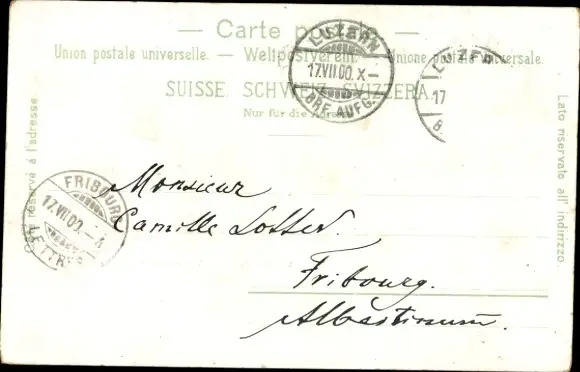 — Carte postale. —
Union postale universelle. — Weltpostverein. — Unione postale universale.
SUISSE. SCHWEIZ. SVIZZERA.
Nur für die Adresse
LUZERN
17.VII.00.X-
BRF.AUFG.
LUZERN
17
8.
Côté réservé à l'adresse
Lato riservato all' indirizzo.
FRIBOURG
17.VII.00.-8
LETTRES
Monsieur
Camille Lotter.
Fribourg.
Albertinum.